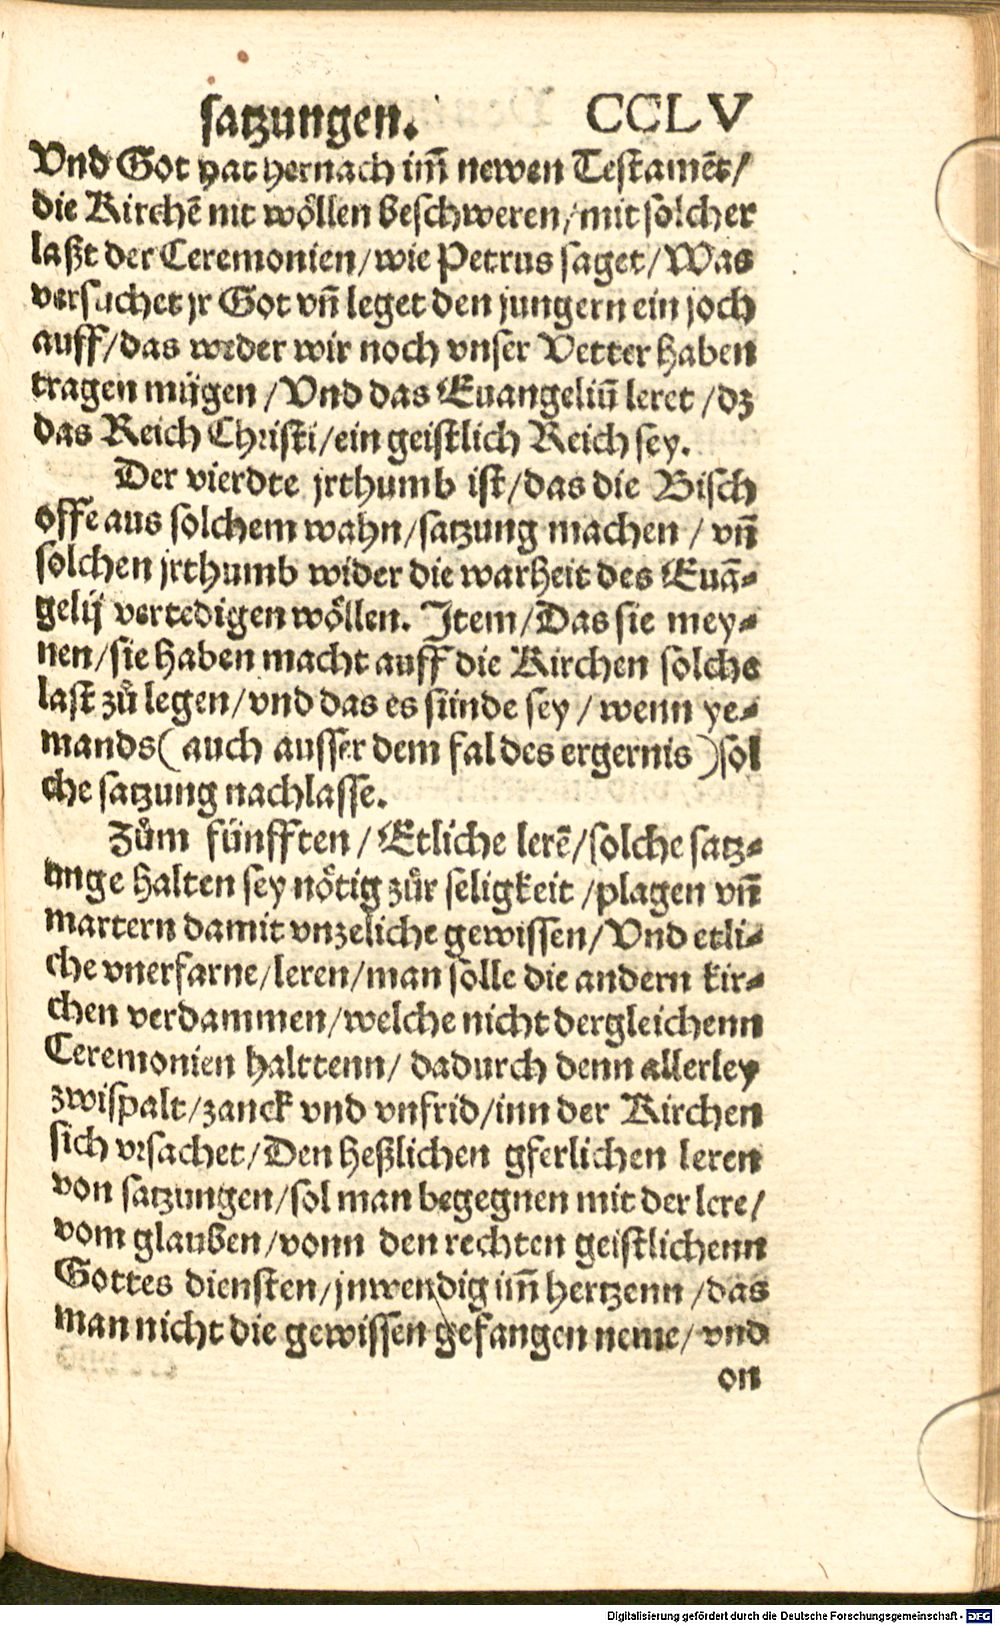 satzungen. CCLV
Vnd Got hat hernach im̃ newen Testamẽt/
die Kirchẽ nit wöllen beschweren/mit solcher
laßt der Ceremonien/wie Petrus saget/Was
versuchet jr Got vñ leget den jungern ein joch
auff/das weder wir noch vnser Vetter haben
tragen mügen/Vnd das Euangeliũ leret/dz
das Reich Christi/ein geistlich Reich sey.
Der vierdte jrthumb ist/das die Bisch
offe aus solchem wahn/satzung machen/vñ
solchen jrthumb wider die warheit des Euã-
gelij vertedigen wöllen. Item/Das sie mey-
nen/sie haben macht auff die Kirchen solche
last zů legen/vnd das es sünde sey/wenn ye-
mands(auch ausser dem fal des ergernis)sol
che satzung nachlasse.
Zům fünfften/Etliche lerẽ/solche satz-
unge halten sey nötig zůr seligkeit/plagen vñ
martern damit vnzeliche gewissen/Vnd etli-
che vnerfarne/leren/man solle die andern kir-
chen verdammen/welche nicht dergleichenn
Ceremonien halttenn/dadurch denn allerley
zwispalt/zanck vnd vnfrid/inn der Kirchen
sich vrsachet/Den heßlichen gferlichen leren
von satzungen/sol man begegnen mit der lere/
vom glauben/vonn den rechten geistlichenn
Gottes diensten/jnwendig im̃ hertzenn/das
man nicht die gewissen gefangen neme/vnd
on
Digitalisierung gefördert durch die Deutsche Forschungsgemeinschaft - DFG